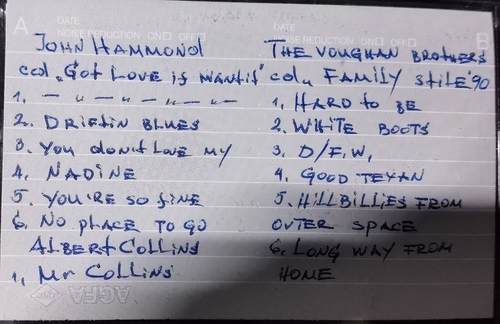 A DATE
NOISE REDUCTION ON OFF
JOHN HAMMOND
cd. „Got Love if wantit"
1. — „ — „ — „ — „ —
2. DRIFTIN BLUES
3. You don't Love MY
4. NADINE
5. YOU'RE SO FINE
6. NO PLACE TO GO
ALBERT COLLINS
1, Mr COLLINS
AGFA
DATE B
NOISE REDUCTION ON OFF
THE VOUGHAN BROTHERS
cd. FAMILY STILE '90
1. HARD to BE
2. WHITE BOOTS
3. D/F.W,
4. GOOD TEXAN
5. HILLBILLIES FROM
OUTER SPACE
6. LONG WAY FROM
HOME